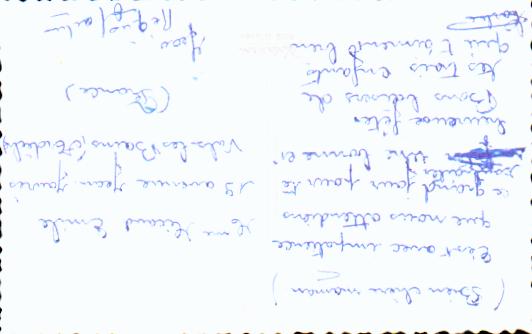 (Bien chère maman)
C'est avec impatience
que nous attendions
ce grand jour pour te
souhaiter une bonne et
heureuse fête
Bons baisers de
tes trois enfants
qui t'aiment bien
Mme Emile
19 avenue Jean Jaurès
Vals les Bains (Ardèche)
(France)